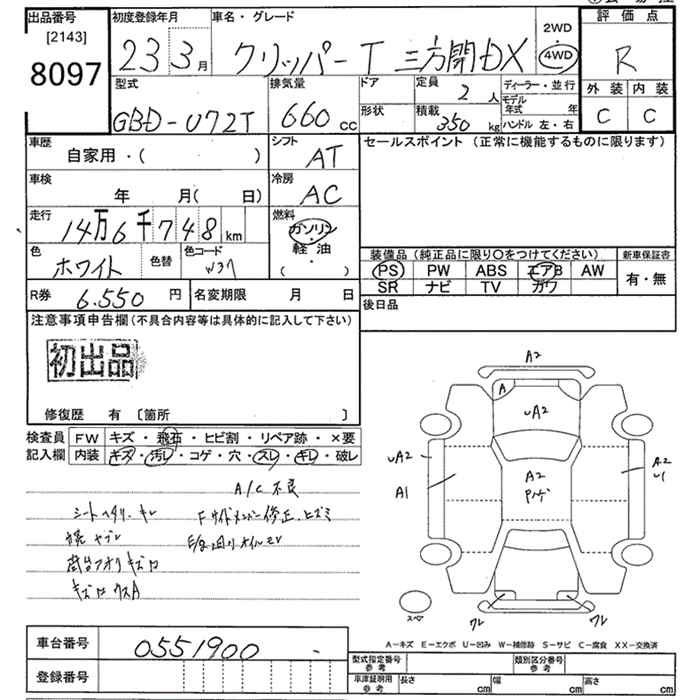 出品番号 初度登録年月 車名・グレード 2WD 評価点
[2143]
8097 23 3月 クリッパーT 三方開DX 4WD R
型式 排気量 ドア 定員 2人 ディーラー・並行 外装 内装
GBD-U72T 660cc 形状 積載 350kg モデル年式 年 ハンドル 左・右 C C
車歴 シフト セールスポイント(正常に機能するものに限ります)
自家用・( ) AT
車検 冷房
年 月(日) AC
走行 燃料
14万6千748km ガソリン・軽油・( )
色 色替 色コード 装備品(純正品に限り○をつけてください) 新車保証書
ホワイト W37 PS PW ABS エアB AW 有・無
SR ナビ TV カワ
R券 6.550円 名変期限 月 日 後日品
注意事項申告欄(不具合内容等は具体的に記入して下さい)
初出品
修復歴 有〔箇所 〕
検査員 FW キズ・飛石・ヒビ割・リペア跡・×要
記入欄 内装 キズ・汚レ・コゲ・穴・スレ・キレ・破レ
A/C不良
シートヘタリ・キレ Fサイドメンバー修正、ヒズミ
荷台アオリキズ
A2
A
UA2
UA2 A2 A2
A1 U1
スペア
ワレ ワレ
A−キズ E−エクボ U−凹み W−補修跡 S−サビ C−腐食 XX−交換済
車台番号 0551900 型式指定番号 参考 類別区分番号 参考
登録番号 車庫証明用 参考 長さ cm 幅 cm 高さ cm